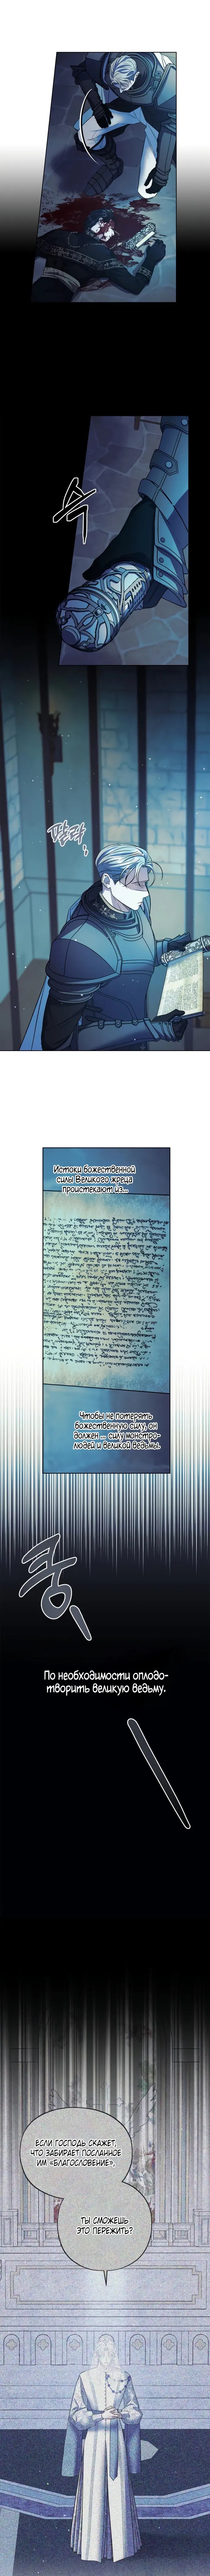 슥
팔락
Истоки божественной
силы Великого жреца
проистекают из...
Чтобы не потерять
божественную силу, он
должен... силу монстро-
людей и Великой Ведьмы.
쿵
По необходимости оплодо-
творить великую ведьму.
Если Господь скажет,
что забирает посланное
им «благословение»,
ты сможешь
это пережить?